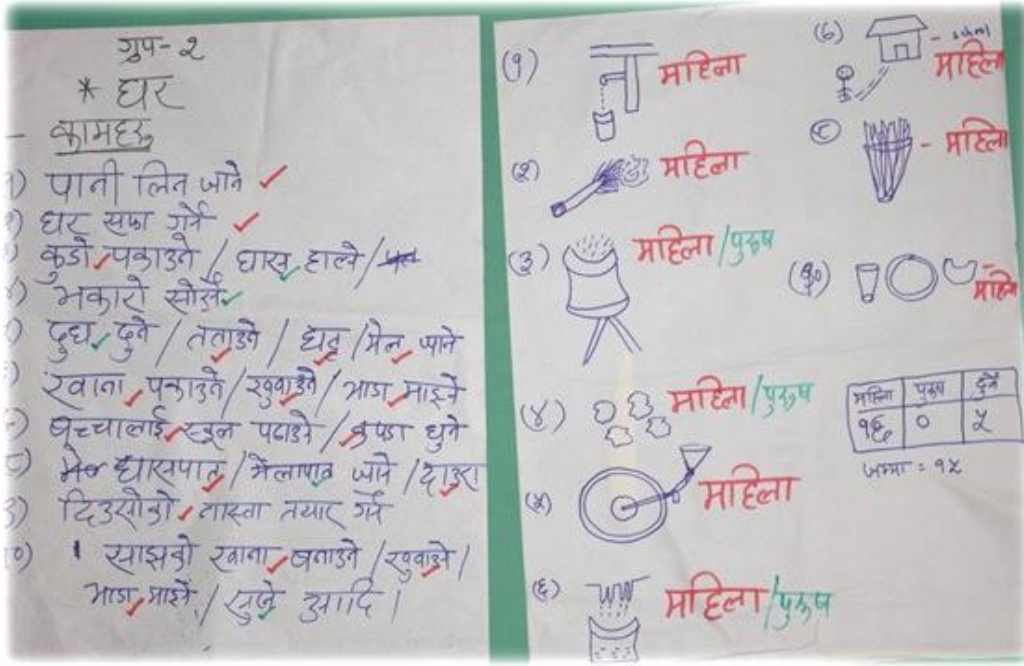 ग्रुप- २
* घर
- कामहरु
१) पानी लिन जाने ✓
२) घर सफा गर्ने ✓
३) कुडो पकाउने / घास हाल्ने /
४) भकारो सोर्ने
५) दुध दुने / तताउने / घट्ट / मेल जाने
६) खाना पकाउने / खुवाउने / भाडा माझ्ने
७) बच्चालाई स्कुल पठाउने / कपडा धुने
८) घासपात / मेलापात जाने / दाउरा
९) दिउसोको नास्ता तयार गर्ने
१०) साझको खाना बनाउने / खुवाउने /
भाडा माझ्ने / सुत्ने आदि ।
(१) महिना
(२) महिना
(३) महिला/पुरुष
(४) महिला/पुरुष
(५) महिला
(६) महिला/पुरुष
- school
महिला
- महिला
(१०) - महिला
महिला पुरुष दुवै
१६ ० ५
जम्मा = १५